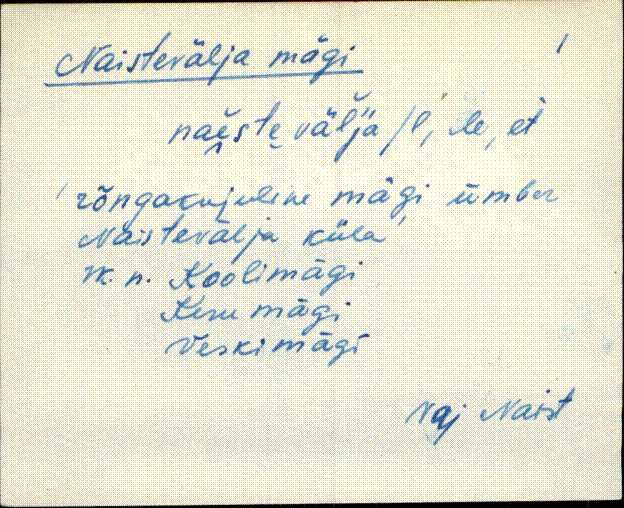 Naistevälja mägi 1
naestevälja /l, le, et
rõngakujuline mägi ümber
Naistevälja küla
vk. n. Koolimägi
Keru mägi
Veskimägi
Naist